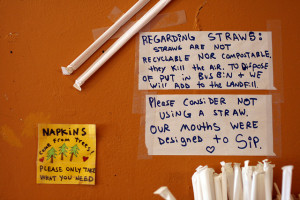 REGARDING STRAWS:
STRAWS ARE NOT
RECYCLABLE NOR COMPOSTABLE.
they KILL the AIR. TO DISPOSE
OF PUT IN BUS BIN + WE
WILL ADD to the LANDFILL.
PLEASE CONSIDER NOT
USING A STRAW.
OUR MOUTHS WERE
DESIGNED to SIP.
NAPKINS
Come From Trees!
PLEASE ONLY TAKE
WHAT YOU NEED